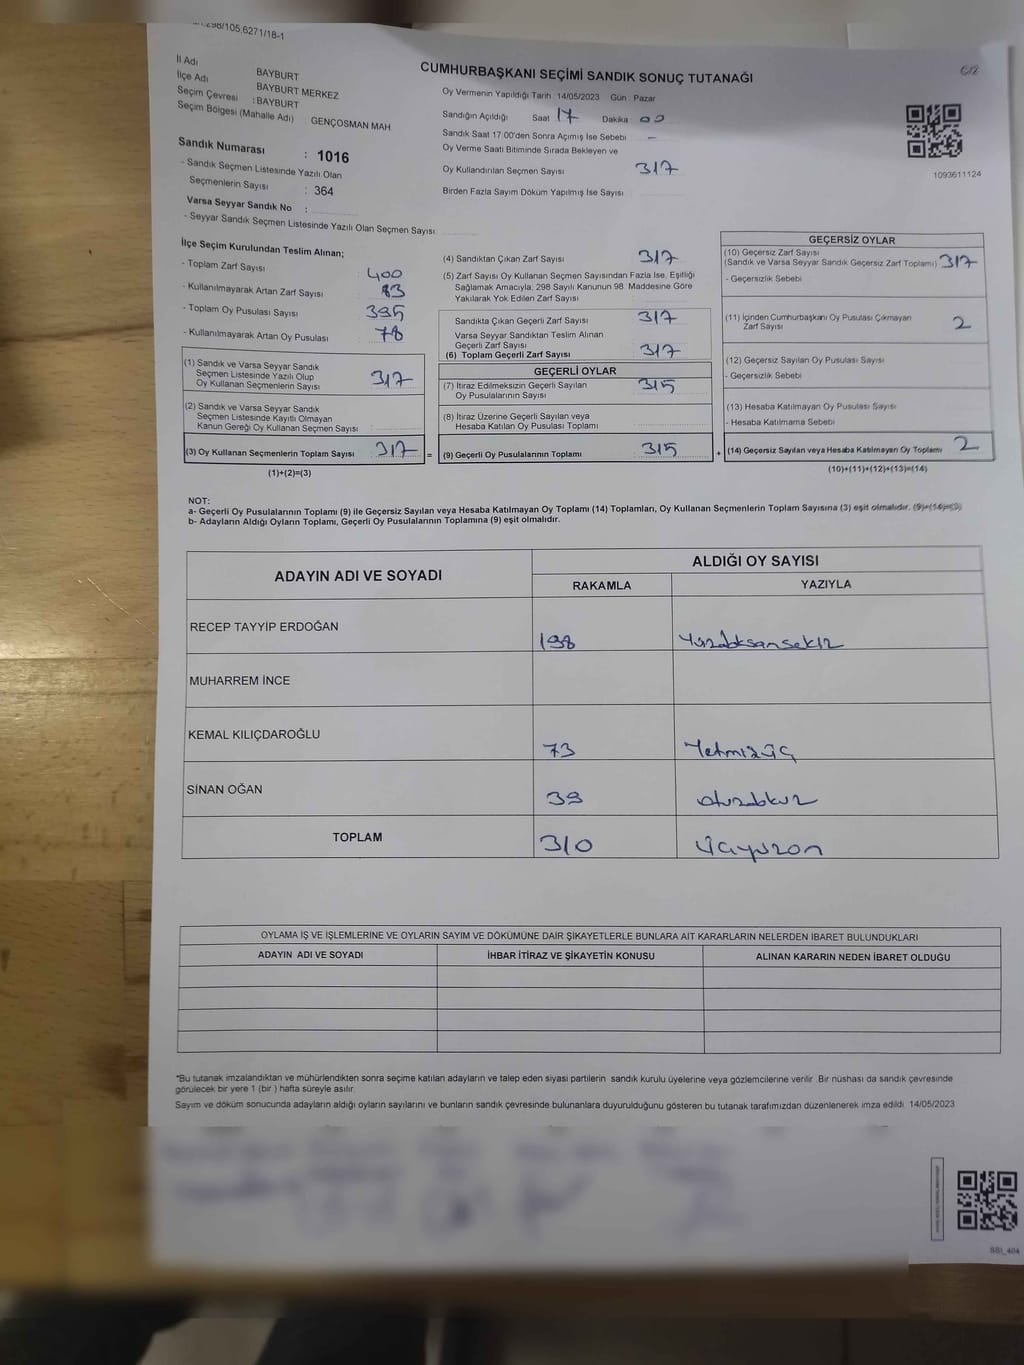 298/105,6271/18-1
6/2
CUMHURBAŞKANI SEÇİMİ SANDIK SONUÇ TUTANAĞI
İl Adı BAYBURT
İlçe Adı BAYBURT MERKEZ
Seçim Çevresi : BAYBURT
Seçim Bölgesi (Mahalle Adı) : GENÇOSMAN MAH.
Sandık Numarası : 1016
- Sandık Seçmen Listesinde Yazılı Olan
Seçmenlerin Sayısı : 364
Varsa Seyyar Sandık No :
- Seyyar Sandık Seçmen Listesinde Yazılı Olan Seçmen Sayısı
Oy Vermenin Yapıldığı Tarih : 14/05/2023 Gün : Pazar
Sandığın Açıldığı Saat 17 Dakika 00
Sandık Saat 17:00'den Sonra Açımış İse Sebebi -
Oy Verme Saati Bitiminde Sırada Bekleyen ve
Oy Kullandırılan Seçmen Sayısı 317
Birden Fazla Sayım Döküm Yapılmış İse Sayısı
1093611124
İlçe Seçim Kurulundan Teslim Alınan;
- Toplam Zarf Sayısı : 400
- Kullanılmayarak Artan Zarf Sayısı : 83
- Toplam Oy Pusulası Sayısı : 395
- Kullanılmayarak Artan Oy Pusulası : 78
(1) Sandık ve Varsa Seyyar Sandık
Seçmen Listesinde Yazılı Olup
Oy Kullanan Seçmenlerin Sayısı : 317
(2) Sandık ve Varsa Seyyar Sandık
Seçmen Listesinde Kayıtlı Olmayan
Kanun Gereği Oy Kullanan Seçmen Sayısı :
(3) Oy Kullanan Seçmenlerin Toplam Sayısı : 317 =
(1)+(2)=(3)
(4) Sandıktan Çıkan Zarf Sayısı : 317
(5) Zarf Sayısı Oy Kullanan Seçmen Sayısından Fazla İse, Eşitliği
Sağlamak Amacıyla; 298 Sayılı Kanunun 98. Maddesine Göre
Yakılarak Yok Edilen Zarf Sayısı :
Sandıkta Çıkan Geçerli Zarf Sayısı : 317
Varsa Seyyar Sandıktan Teslim Alınan
Geçerli Zarf Sayısı :
(6) Toplam Geçerli Zarf Sayısı : 317
GEÇERLİ OYLAR
(7) İtiraz Edilmeksizin Geçerli Sayılan
Oy Pusulalarının Sayısı : 315
(8) İtiraz Üzerine Geçerli Sayılan veya
Hesaba Katılan Oy Pusulası Toplamı :
(9) Geçerli Oy Pusulalarının Toplamı : 315 +
GEÇERSİZ OYLAR
(10) Geçersiz Zarf Sayısı
(Sandık ve Varsa Seyyar Sandık Geçersiz Zarf Toplamı) 317
- Geçersizlik Sebebi
(11) İçinden Cumhurbaşkanı Oy Pusulası Çıkmayan
Zarf Sayısı 2
(12) Geçersiz Sayılan Oy Pusulası Sayısı
- Geçersizlik Sebebi
(13) Hesaba Katılmayan Oy Pusulası Sayısı
- Hesaba Katılmama Sebebi
(14) Geçersiz Sayılan veya Hesaba Katılmayan Oy Toplamı 2
(10)+(11)+(12)+(13)=(14)
NOT:
a- Geçerli Oy Pusulalarının Toplamı (9) ile Geçersiz Sayılan veya Hesaba Katılmayan Oy Toplamı (14) Toplamları, Oy Kullanan Seçmenlerin Toplam Sayısına (3) eşit olmalıdır. (9)+(14)=(3)
b- Adayların Aldığı Oyların Toplamı, Geçerli Oy Pusulalarının Toplamına (9) eşit olmalıdır.
ADAYIN ADI VE SOYADI ALDIĞI OY SAYISI
RAKAMLA YAZIYLA
RECEP TAYYİP ERDOĞAN 198 Yüzdoksansekiz
MUHARREM İNCE
KEMAL KILIÇDAROĞLU 73 Yetmişüç
SİNAN OĞAN 39 otuzdokuz
TOPLAM 310 Üçyüzon
OYLAMA İŞ VE İŞLEMLERİNE VE OYLARIN SAYIM VE DÖKÜMÜNE DAİR ŞİKAYETLERLE BUNLARA AİT KARARLARIN NELERDEN İBARET BULUNDUKLARI
ADAYIN ADI VE SOYADI İHBAR İTİRAZ VE ŞİKAYETİN KONUSU ALINAN KARARIN NEDEN İBARET OLDUĞU
*Bu tutanak imzalandıktan ve mühürlendikten sonra seçime katılan adayların ve talep eden siyasi partilerin sandık kurulu üyelerine veya gözlemcilerine verilir. Bir nüshası da sandık çevresinde
görülecek bir yere 1 (bir ) hafta süreyle asılır.
Sayım ve döküm sonucunda adayların aldığı oyların sayılarını ve bunların sandık çevresinde bulunanlara duyurulduğunu gösteren bu tutanak tarafımızdan düzenlenerek imza edildi. 14/05/2023
SSI_404